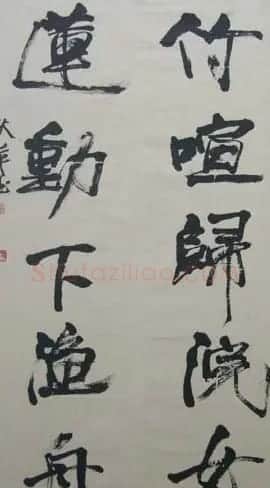 竹喧歸浣女
蓮動下漁舟
shufaziliao.com